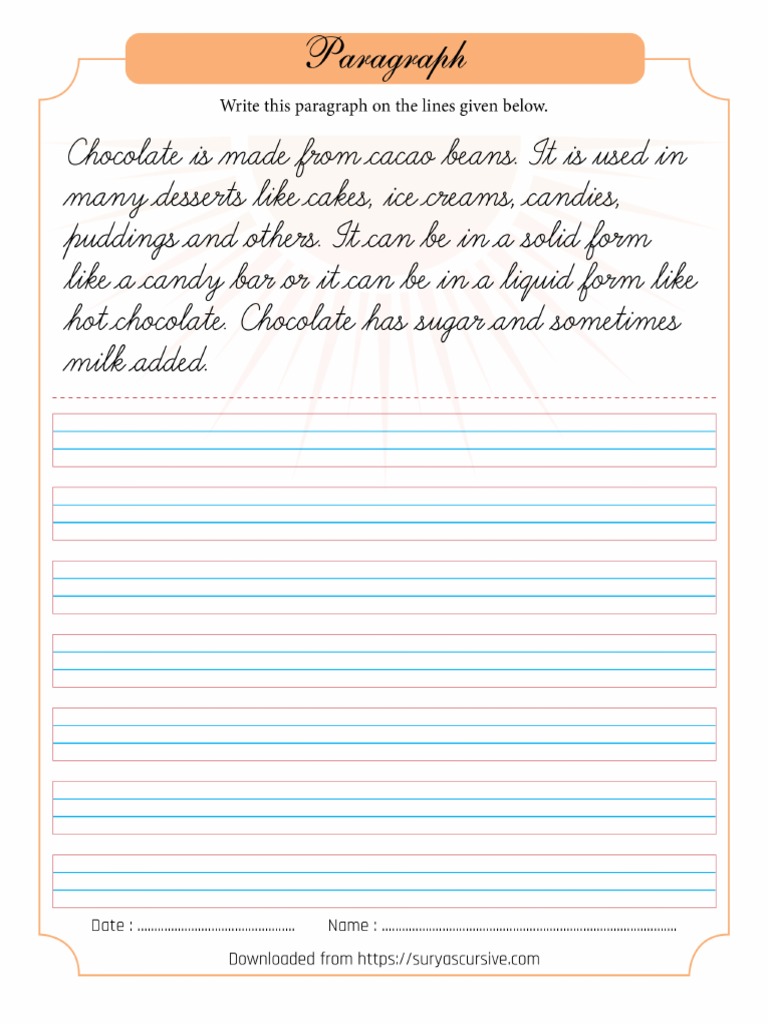 Paragraph
Write this paragraph on the lines given below.
Chocolate is made from cacao beans. It is used in
many desserts like cakes, ice creams, candies,
puddings and others. It can be in a solid form
like a candy bar or it can be in a liquid form like
hot chocolate. Chocolate has sugar and sometimes
milk added.
Date : ............................................... Name : ........................................................................................
Downloaded from https://suryascursive.com